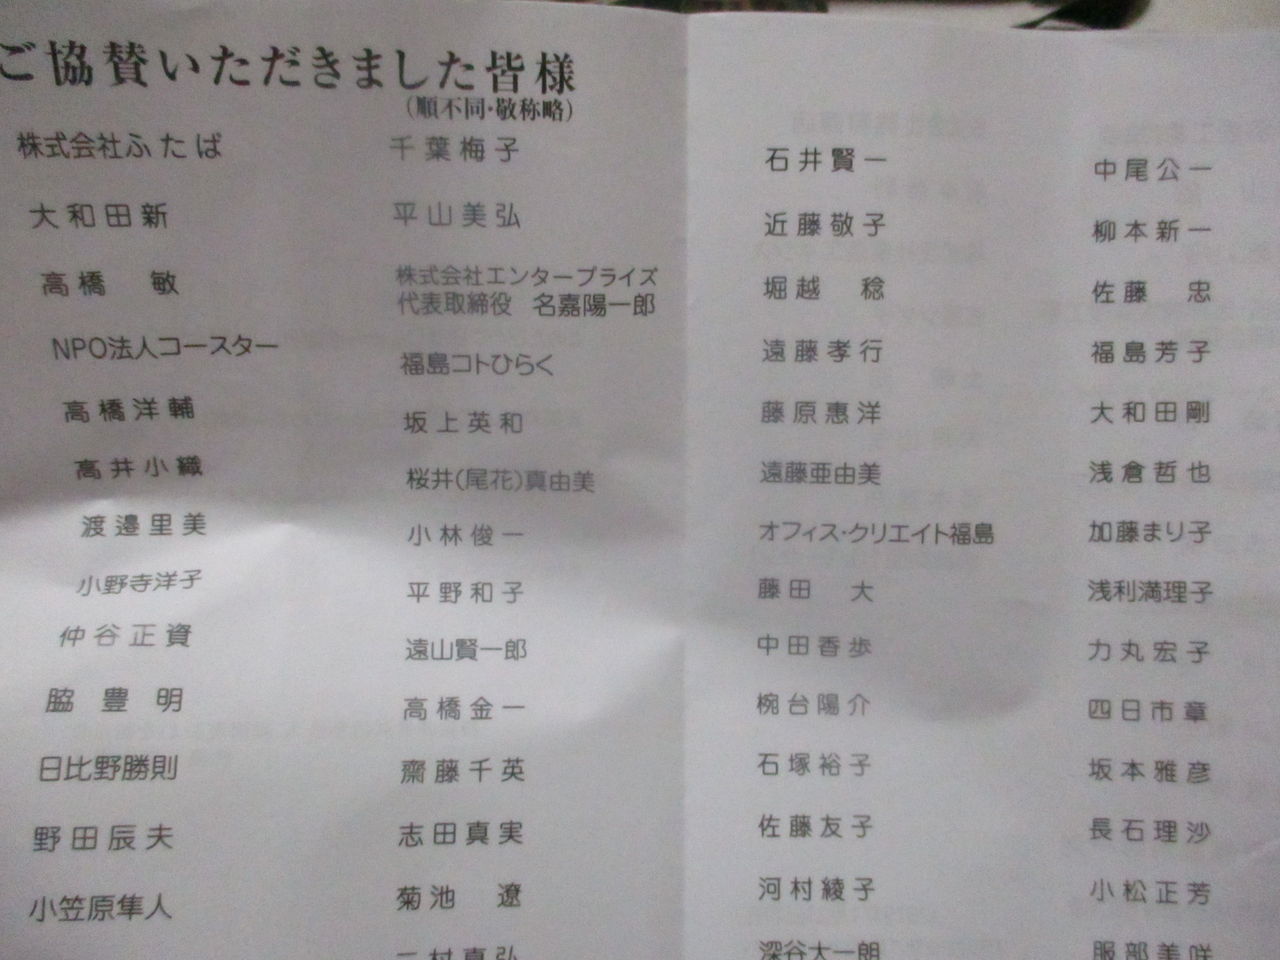 ご協賛いただきました皆様
（順不同・敬称略）
株式会社ふたば
大和田新
高橋　敏
NPO法人コースター
高橋洋輔
高井小織
渡邉里美
小野寺洋子
仲谷正資
脇豊明
日比野勝則
野田辰夫
小笠原隼人
千葉梅子
平山美弘
株式会社エンタープライズ
代表取締役　名嘉陽一郎
福島コトひらく
坂上英和
桜井（尾花）真由美
小林俊一
平野和子
遠山賢一郎
高橋金一
齋藤千英
志田真実
菊池　遼
二村真弘
石井賢一
近藤敬子
堀越　稔
遠藤孝行
藤原惠洋
遠藤亜由美
オフィス・クリエイト福島
藤田　大
中田香歩
椀台陽介
石塚裕子
佐藤友子
河村綾子
深谷大一朗
中尾公一
柳本新一
佐藤　忠
福島芳子
大和田剛
浅倉哲也
加藤まり子
浅利満理子
力丸宏子
四日市章
坂本雅彦
長石理沙
小松正芳
服部美咲